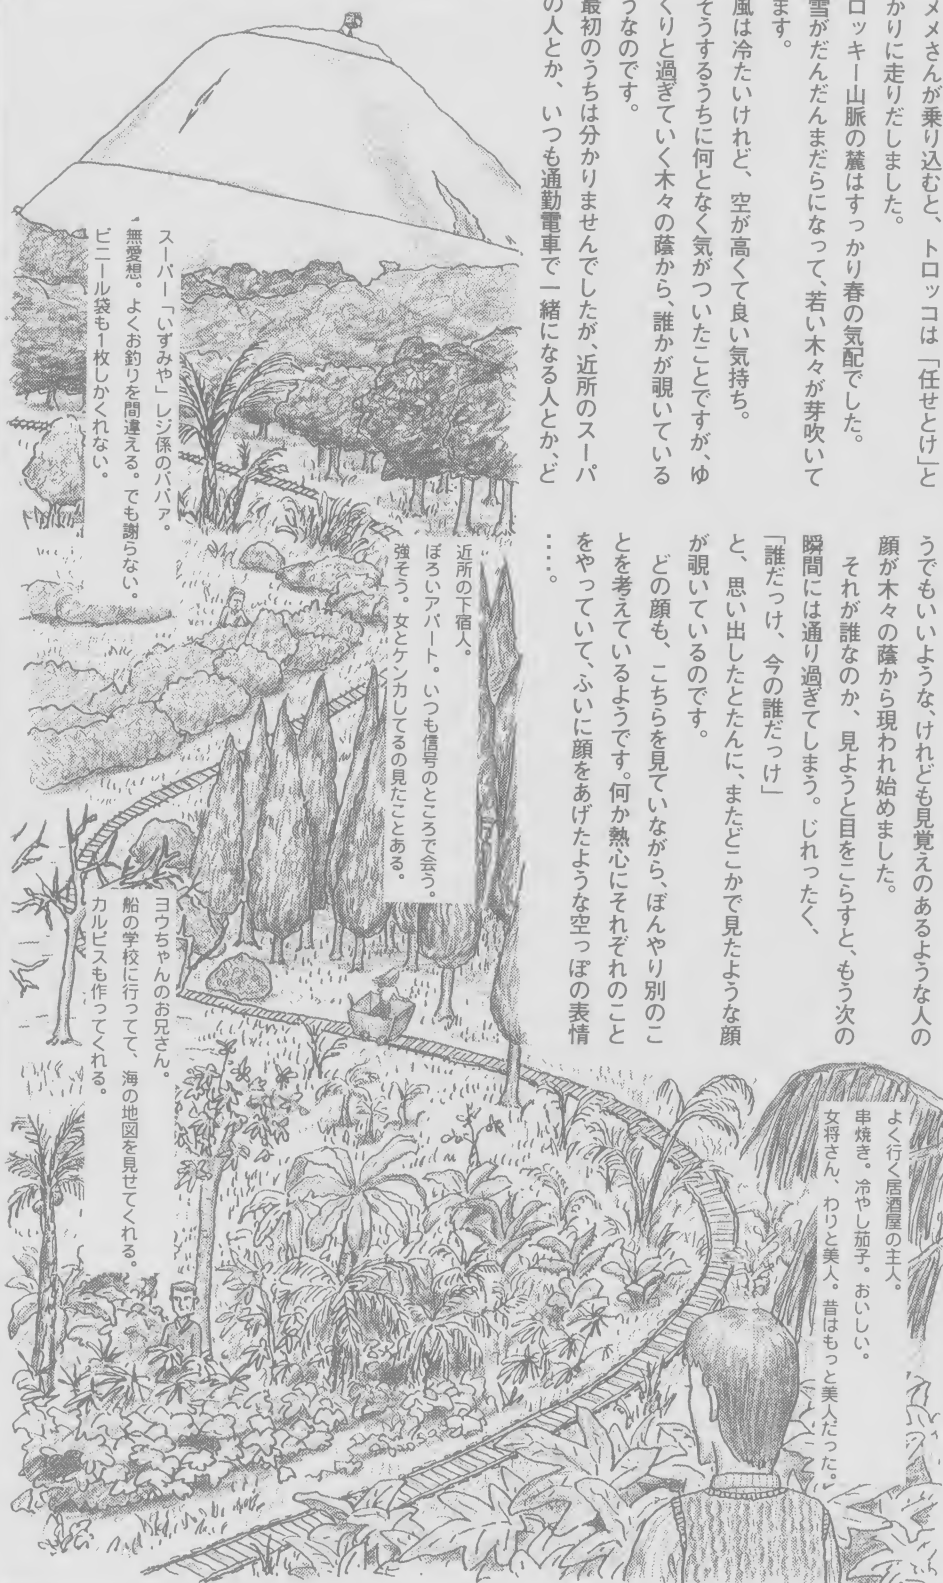 メメさんが乗り込むと、トロッコは「任せとけ」と
かりに走りだしました。
ロッキー山脈の麓はすっかり春の気配でした。
雪がだんだんまだらになって、若い木々が芽吹いて
ます。
風は冷たいけれど、空が高くて良い気持ち。
そうするうちに何となく気がついたことですが、ゆ
くりと過ぎていく木々の蔭から、誰かが覗いている
うなのです。
最初のうちは分かりませんでしたが、近所のスーパ
の人とか、いつも通勤電車で一緒になる人とか、ど
うでもいいような、けれども見覚えのあるような人の
顔が木々の蔭から現われ始めました。
それが誰なのか、見ようと目をこらすと、もう次の
瞬間には通り過ぎてしまう。じれったく、
「誰だっけ、今の誰だっけ」
と、思い出したとたんに、またどこかで見たような顔
が覗いているのです。
どの顔も、こちらを見ていながら、ぼんやり別のこ
とを考えているようです。何か熱心にそれぞれのこと
をやっていて、ふいに顔をあげたような空っぽの表情
‥‥。
スーパー「いずみや」レジ係のババァ。
無愛想。よくお釣りを間違える。でも謝らない。
ビニール袋も1枚しかくれない。
近所の下宿人。
ぼろいアパート。いつも信号のところで会う。
強そう。女とケンカしてるの見たことある。
ヨウちゃんのお兄さん。
船の学校に行ってて、海の地図を見せてくれる。
カルピスも作ってくれる。
よく行く居酒屋の主人。
串焼き。冷やし茄子。おいしい。
女将さん、わりと美人。昔はもっと美人だった。